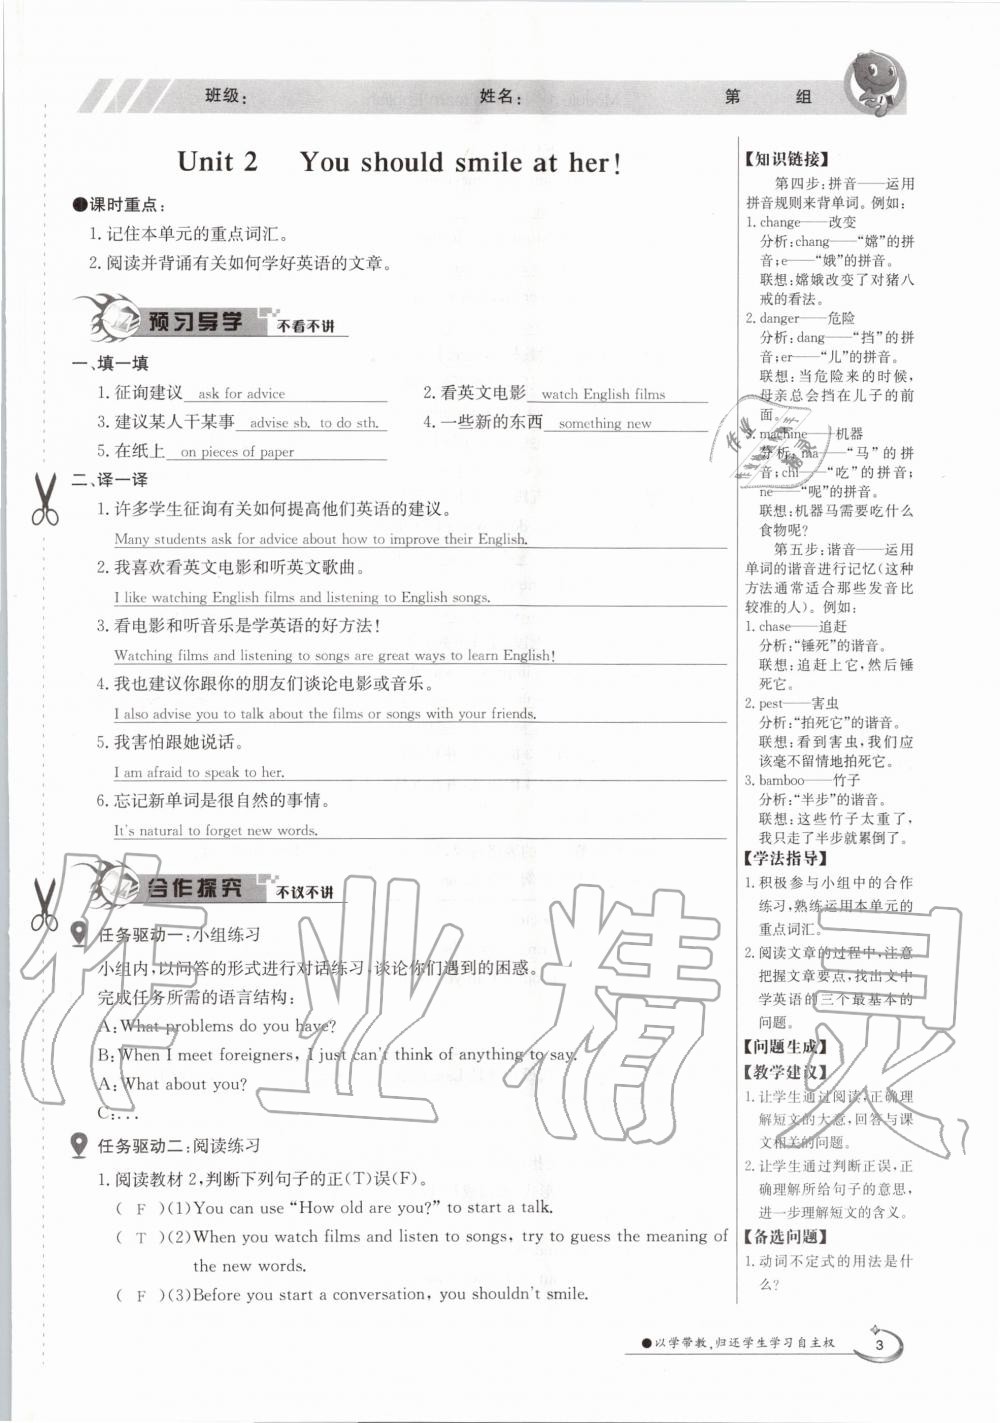 班级:　姓名:　第　组
Unit 2　You should smile at her!
●课时重点:
1.记住本单元的重点词汇。
2.阅读并背诵有关如何学好英语的文章。
预习导学　不看不讲
一、填一填
1.征询建议　ask for advice　2.看英文电影　watch English films
3.建议某人干某事　advise sb. to do sth.　4.一些新的东西　something new
5.在纸上　on pieces of paper
二、译一译
1.许多学生征询有关如何提高他们英语的建议。
Many students ask for advice about how to improve their English.
2.我喜欢看英文电影和听英文歌曲。
I like watching English films and listening to English songs.
3.看电影和听音乐是学英语的好方法!
Watching films and listening to songs are great ways to learn English!
4.我也建议你跟你的朋友们谈论电影或音乐。
I also advise you to talk about the films or songs with your friends.
5.我害怕跟她说话。
I am afraid to speak to her.
6.忘记新单词是很自然的事情。
It's natural to forget new words.
合作探究　不议不讲
任务驱动一:小组练习
小组内,以问答的形式进行对话练习,谈论你们遇到的困惑。
完成任务所需的语言结构:
A:What problems do you have?
B:When I meet foreigners, I just can't think of anything to say.
A:What about you?
C:...
任务驱动二:阅读练习
1.阅读教材2,判断下列句子的正(T)误(F)。
( F )(1)You can use “How old are you?” to start a talk.
( T )(2)When you watch films and listen to songs, try to guess the meaning of
the new words.
( F )(3)Before you start a conversation, you shouldn't smile.
【知识链接】
第四步:拼音——运用
拼音规则来背单词。例如:
1.change——改变
分析:chang——“嫦”的拼
音;e——“娥”的拼音。
联想:嫦娥改变了对猪八
戒的看法。
2.danger——危险
分析:dang——“挡”的拼
音;er——“儿”的拼音。
联想:当危险来的时候,
母亲总会挡在儿子的前
面。
3.machine——机器
分析:ma——“马”的拼
音;chi——“吃”的拼音;
ne——“呢”的拼音。
联想:机器马需要吃什么
食物呢?
第五步:谐音——运用
单词的谐音进行记忆(这种
方法通常适合那些发音比
较准的人)。例如:
1.chase——追赶
分析:“锤死”的谐音。
联想:追赶上它,然后锤
死它。
2.pest——害虫
分析:“拍死它”的谐音。
联想:看到害虫,我们应
该毫不留情地拍死它。
3.bamboo——竹子
分析:“半步”的谐音。
联想:这些竹子太重了,
我只走了半步就累倒了。
【学法指导】
1.积极参与小组中的合作
练习,熟练运用本单元的
重点词汇。
2.阅读文章的过程中,注意
把握文章要点,找出文中
学英语的三个最基本的
问题。
【问题生成】
【教学建议】
1.让学生通过阅读,正确理
解短文的大意,回答与课
文相关的问题。
2.让学生通过判断正误,正
确理解所给句子的意思,
进一步理解短文的含义。
【备选问题】
1.动词不定式的用法是什
么?
●以学带教,归还学生学习自主权　3
作业精灵
作业精灵